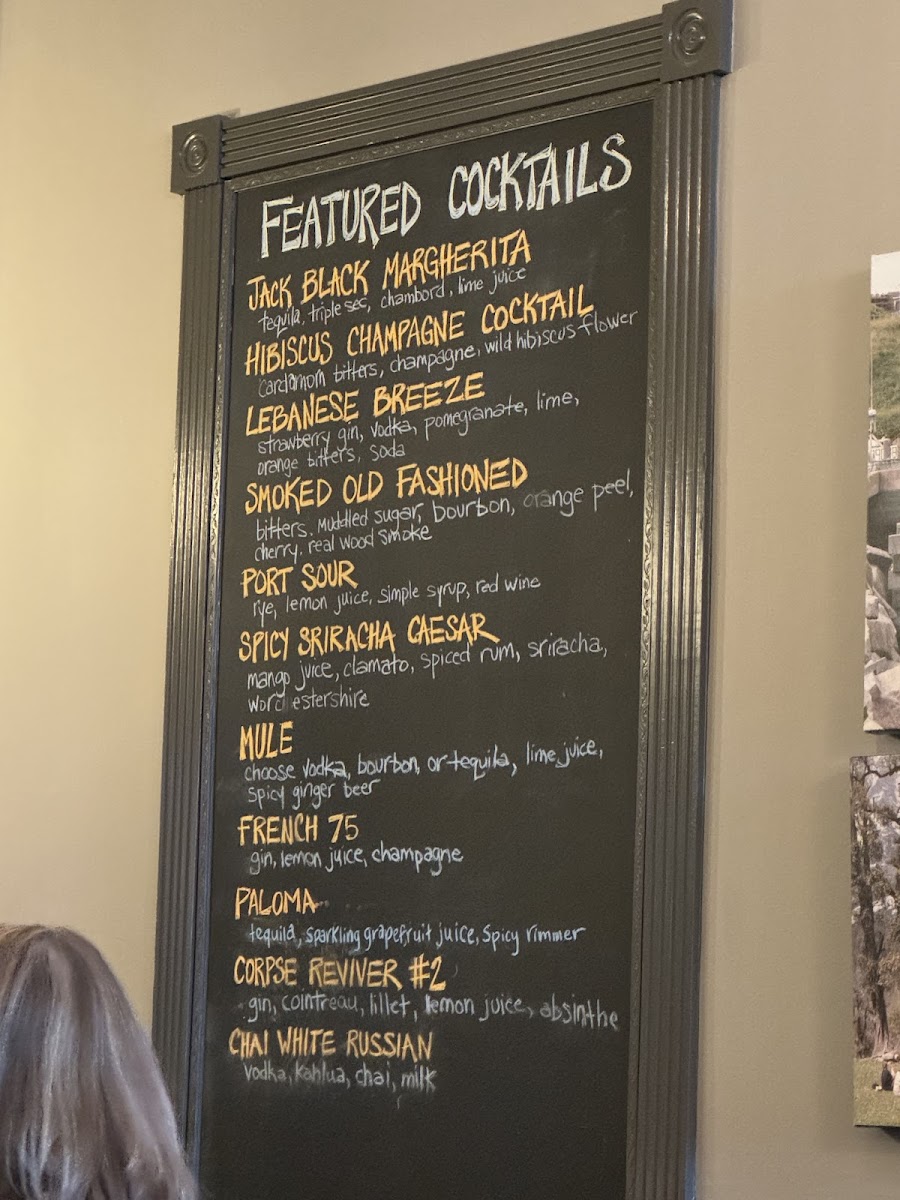 FEATURED COCKTAILS
JACK BLACK MARGHERITA
tequila, triple sec, chambord, lime juice
HIBISCUS CHAMPAGNE COCKTAIL
cardamom bitters, champagne, wild hibiscus flower
LEBANESE BREEZE
strawberry gin, vodka, pomegranate, lime,
orange bitters, soda
SMOKED OLD FASHIONED
bitters, muddled sugar, bourbon, orange peel,
cherry, real wood smoke
PORT SOUR
rye, lemon juice, simple syrup, red wine
SPICY SRIRACHA CAESAR
mango juice, clamato, spiced rum, sriracha,
worcestershire
MULE
choose vodka, bourbon, or tequila, lime juice,
spicy ginger beer
FRENCH 75
gin, lemon juice, champagne
PALOMA
tequila, sparkling grapefruit juice, spicy rimmer
CORPSE REVIVER #2
gin, cointreau, lillet, lemon juice, absinthe
CHAI WHITE RUSSIAN
vodka, kahlua, chai, milk